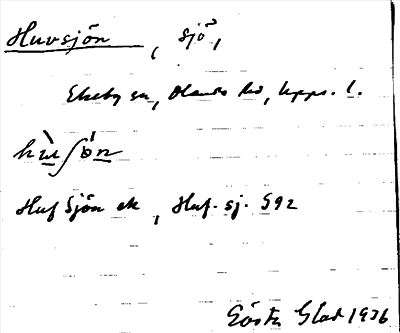 Huvsjön, sjö,
Ekeby sn, Olands hd, Upps. l.
hùʃö́n
Huf Sjön ek, Huf. sj. S92
Gösta Glad 1936